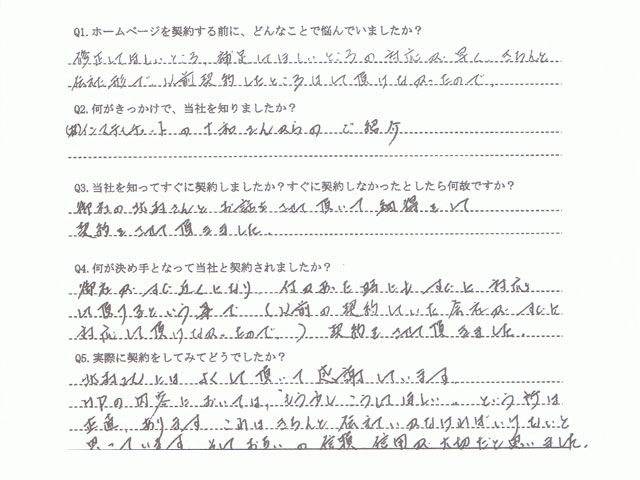 Q1.ホームページを契約する前に、どんなことで悩んでいましたか？
修正してほしいところ、補足してほしいところの対応が早く、きちんと
伝わる形で、以前契約したところはして頂けなかったので、
Q2.何がきっかけで、当社を知りましたか？
の十和さんからのご紹介
Q3.当社を知ってすぐに契約しましたか？すぐに契約しなかったとしたら何故ですか？
御社の北村さんとお話をさせて頂いて納得をして
契約をさせて頂きました。
Q4.何が決め手となって当社と契約されましたか？
御社がすぐ近くとなり、何かあった時にもすぐに対応
して頂けるという事で（以前の契約していた会社がすぐに
対応して頂けなかったので。）契約をさせて頂きました。
Q5.実際に契約をしてみてどうでしたか？
北村さんにはよくして頂いて感謝しています。
HPの内容においては、"もう少しこうしてほしい。"という所は
正直、あります。これはきちんと伝えていかなければいけないと
思っています。そしてお互いの信頼、信用が大切だと思いました。